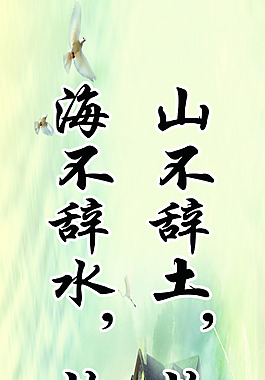 山不辞土，
海不辞水，